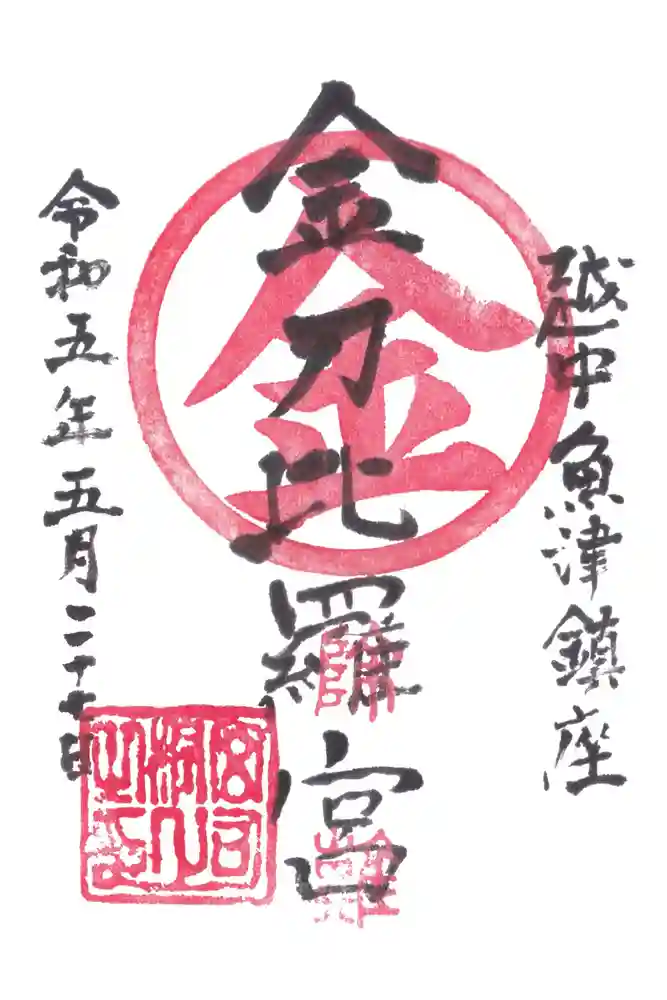 越中魚津鎮座
金
金刀比羅宮
令和五年五月二十七日
宮司
之印